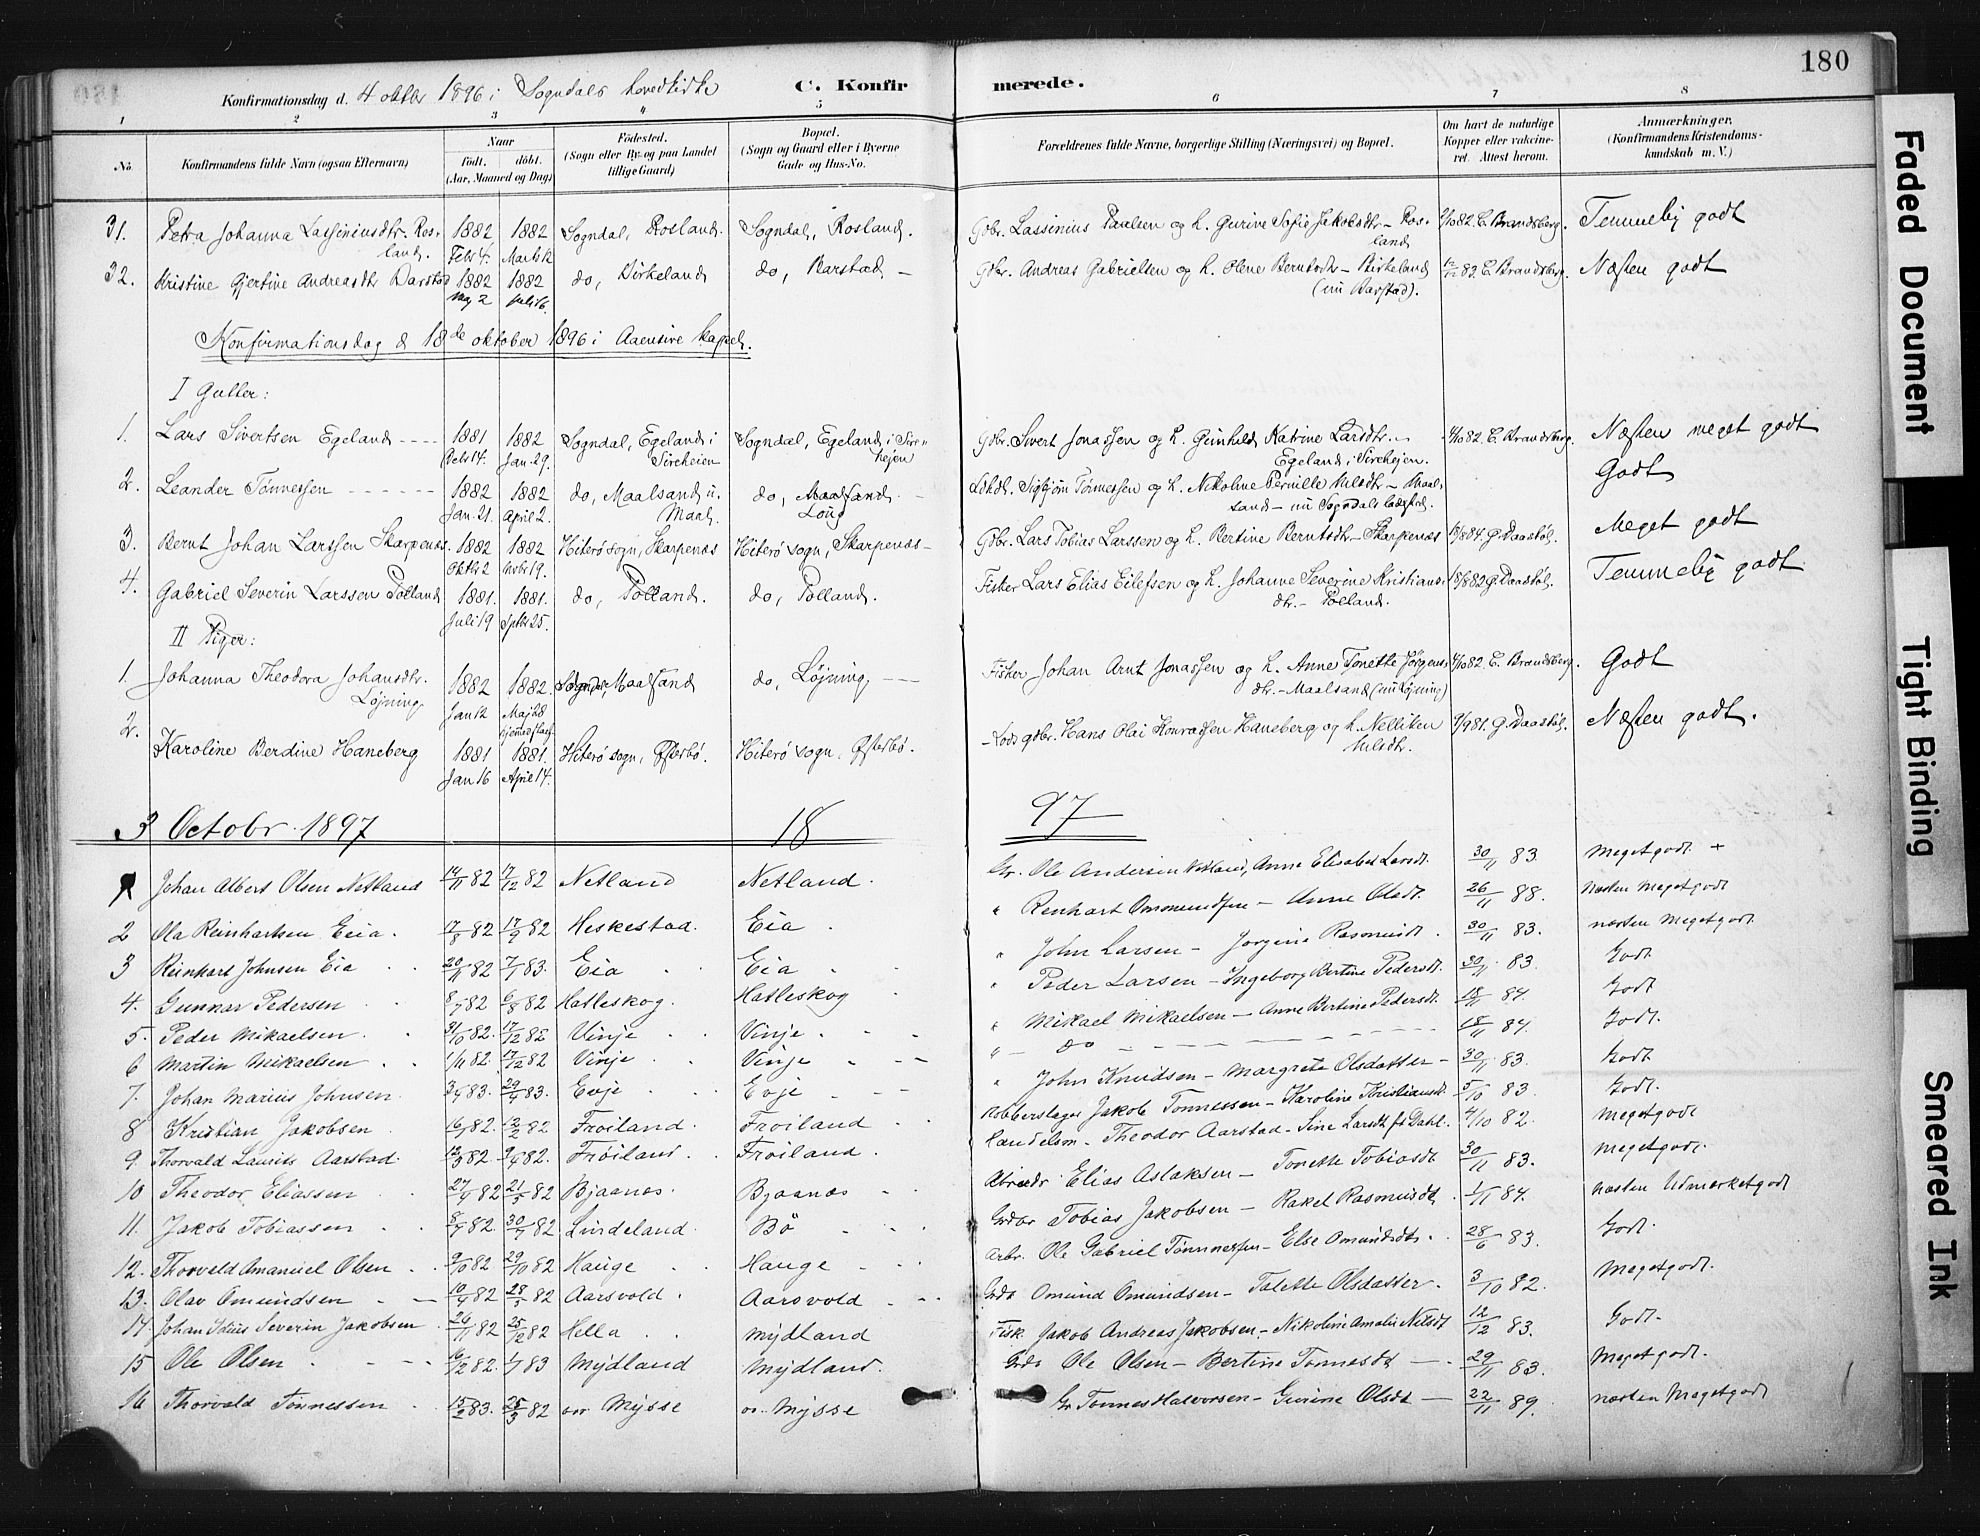 180
Konfirmationsdag d. 4 oktbr 1896 i Sogndals hovedkirke C. Konfir merede.
1 2 3 4 5 6 7 8
No. Konfirmandens fulde Navn (ogsaa Efternavn)
Naar
födt. döbt.
(Aar, Maaned og Dag)
Födested.
(Sogn eller By og paa Landet
tillige Gaard)
Bopæl.
(Sogn og Gaard eller i Byerne
Gade og Hus-No.
Forældrenes fulde Navne, borgerlige Stilling (Næringsvei) og Bopæl.
Om havt de naturlige
Kopper eller vakcine-
ret. Attest herom.
Anmærkninger.
(Konfirmandens Kristendoms-
kundskab m. V.)
31. Petra Johanna Lassiniusdtr. Ros- 1882 1882 Sogndal, Rosland. Sogndal, Rosland. Gdbr. Lassinius Paulsen og h. Gurine Sofie Jakobsdtr - Ros- 82. E. Brandsberg. Temmelig godt
land. Febr 4. land
32. Kristine Gjertine Andreasdtr Barstad 1882 1882 do, Birkeland do, Barstad - Gdbr. Andreas Gabrielsen og h. Olene Berntsdtr - Birkeland 82. E. Brandsberg. Næsten godt
Maj 2 Juli 6. (nu Barstad).
Konfirmationsdag d 18de oktober 1896 i Aaensire kapel.
I Gutter:
1. Lars Sivertsen Egeland 1881 1882 Sogndal, Egeland i Sogndal, Egeland i Sire- Gdbr. Sivert Jonassen og h. Gunhild Katrine Larsdtr. - 82. E. Brandsberg. Næsten meget godt
Octr 14. Jan. 29. Sireheien hejen Egeland i Sirehejen.
2. Leander Tønnessen 1882 1882 do, Maalsand u. do, Sigbjørn Tønnessen og h. Nikoline Pernille Nilsdtr - Maal- Godt
Jan. 21. April 2. sand - nu Sogndals
3. Bernt Johan Larssen Skarpenæs. 1882 1882 Hiterø sogn, Skarpenæs Hiterø sogn, Skarpenæs - Gdbr. Lars Tobias Larssen og h. Bertine Berntsdtr - Skarpenæs G. Daastøl. Meget godt
Oktbr 2 Novbr 19.
4. Gabriel Severin Larssen Polland 1881. 1881. do, Polland. do, Polland. Fisker Lars Elias Eilefsen og h. Johanne Severine Kristians- G. Daastøl. Temmelig godt
Juli 19 Septbr 25. dtr. - Polland.
II Piger:
1. Johanna Theodora Johansdtr. 1882 1882. Sogndal, Maalsand do, Løjning Fisker Johan Arnt Jonassen og h. Anne Tonette Jørgens- 82. E. Brandsberg. Godt
Løjning Jan 12 Maj 28 dtr. - Maalsand (nu Løjning)
2. Karoline Berdine Haneberg 1881 1881. Hiterø sogn, Østerbø. Hiterø sogn, Østerbø. Lods gdbr. Hans Olai Konradsen Haneberg og h. Nelliken 9/9 81. G. Daastøl. Næsten godt.
Jan 16 April 14. Nilsdtr.
3 Octobr 1897 18 97
1 Johan Albert Olsen Netland 14/11 82 17/12 82 Netland Netland. Gr. Ole Andersen Netland, Anne Elisabet Larsdt. 30/11 83. Meget godt +
2 Ola Reinhartsen Eeia. 17/8 82 17/9 82 Heskestad. Eia. " Renhart Ommundsen - Anne Olsdt. 26/11 88. Næsten Meget godt
3 Reinhart Johnsen Eia 20/11 82 7/1 83. Eia Eia " John Larsen - Jorgine Rasmusdt. 30/11 83. næsten Meget godt.
4. Gunnar Pedersen 8/7 82 6/8 82 Hatleskog. Hatleskog " Peder Larsen - Ingeborg Bertine Pedersdt. 30/11 83. Godt
5. Peder Mikaelsen. 31/10 82. 17/12 82 Vinje Vinje. " Mikael Mikaelsen - Anne Bertine Pedersdt. 18/11 84. Godt
6 Martin Mikaelsen 1/11 82. 17/12 82 Vinje Vinje " do 18/11 84. Godt.
7. Johan Marius Johnsen. 3/4 83. 29/4 83. Evje Evje " John Knudsen - Margrete Olsdatter - 30/11 83. Godt
8 Kristian Jakobsen 16/1 82. 12/2 82 Frøiland. Frøiland Kobberslager Jakob Tønnessen - Karoline Kristiansdt. 5/10 83. Godt.
9. Thorvald Laurits Aarstad. 12/3 82. 9/4 82. Frøiland. Frøiland. Handelsm. - Theodor Aarstad - Sine Larsdt ft Dahl. 4/10 82. Meget godt
10 Theodor Eliassen 27/4 82 21/5 82 Bjaanes. Bjaanes Elias Aslaksen - Tonette Tobiasdt 30/11 83. Meget godt.
11. Jakob Tobiassen 8/7 82. 30/7 82 Lindeland Bö Tobias Jakobsen - Rakel Rasmusdt 1/11 84. næsten Udmærket godt
12. Thorvald Amanuel Olsen 9/10 82 29/10 82 Hauge Hauge Arb. Ole Gabriel Tønnessen - Else Omundsdtr. 28/6 83. Godt.
13. Olav Omundsen 10/4 82 28/5 82 Aarsvold. Aarsvold Omund Omundsen - Talette Olsdatter. 3/10 82. Meget godt.
14. Johan Severin Jakobsen 26/11 82 25/12 82 Hella Mydland Fisk. Jakob Andreas Jakobsen - Nikoline Amalie Nilsdt 12/12 83. Godt.
15 Ole Olsen 16/12 82. 83 Mydland Mydland. Ole Olsen - Bertine Tonnesdt 29/11 83. Meget godt.
16 Thorvald Tönnessen 15/2 83. 25/3 82 Mysse Mysse Gr Tonnes Halvorsen - Gurine Olsdt 22/11 89. næsten Meget godt
Faded Document
Tight Binding
Smeared Ink